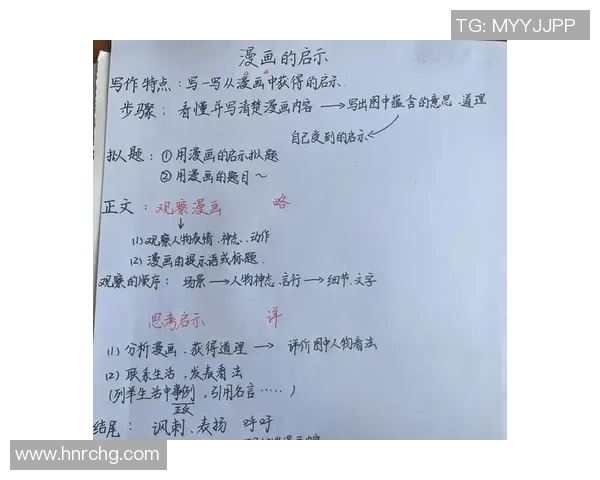 TG: MYYJJPP
漫画的启示
写作特点：写一写从漫画中获得的启示.
步骤：看懂并写清楚漫画内容→写出图中蕴含的意思、道理
自己受到的启示
拟人题：①用漫画的启示拟题
②用漫画的题目～
正文：观察漫画 略
↓
(1)观察人物表情、神态、动作
(2)漫画的提示语或标题.
观察的顺序：场景→人物神态、言行→细节、文字
思考启示 详
(1)分析漫画、获得道理→评价图中人物看法
(2)联系生活，发表看法
(列举生活中事例，引用名言……)
正反
结尾：讽刺、表扬 呼吁
www.hnrchg.com